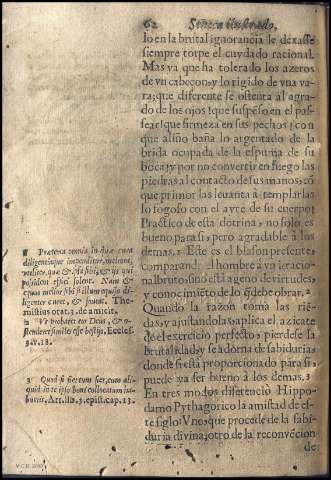 62 Seneca ilustrado,
lo en la brutal ignorancia le dexasse
siempre torpe el cuydado racional.
Mas ya que ha tolerado los azeros
de vn cabeçon, y lo rigido de vna va
ra; que diferente se ostenta al agra-
do de los ojos! que suspẽso en el pas-
sear! que firmeza en sus pechos! con
que aliño baña lo argentado de la
brida ocupada de la espuma de su
boca; y por no convertir en fuego las
piedras al contacto de sus manos, cõ
que primor las leuanta à templarlas
lo fogoso con el ayre de su cuerpo!
Practico de esta dotrina, no solo es
bueno para si, pero agradable à los
demas. 1 Este es el blason presente,
comparando al hombre à vn irracio-
nal bruto, sino està ageno de virtudes,
y conocimiẽto de lo q̃ debe obrar. 2
Quando la razon toma las riẽ-
das, y ajustandola, aplica el azicate
de el exercicio perfecto, pierdese la
brutalidad, y se adorna de sabiduria,
donde si està proporcionado para si,
puede ya ser bueno à los demas. 3
En tres modos diferenciò Hippo-
damo Pythagorico la amistad de es-
te siglo: Vno, que procede de la sabi-
duria divina; otro de la reconvẽcion
de
1 Præterea omnia in quæ cura
diligentiaque impenditur, meliora,
&, quæ & sibi, & ijs qui
possident esse solent. Nam &
equus melior sibi si illum equiso di-
ligenter curet, & foueat. The-
mistius orat. 3. de amicis.
2 Vt probaret eos Deus, & o-
stenderet similes esse bestijs. Eccles.
3. v. 18.
3 Quid si fieri tum sicr, cum ali-
quid in te ipso boni collocatum ha-
bueris. Arr. lib. 3. epist. cap. 13.